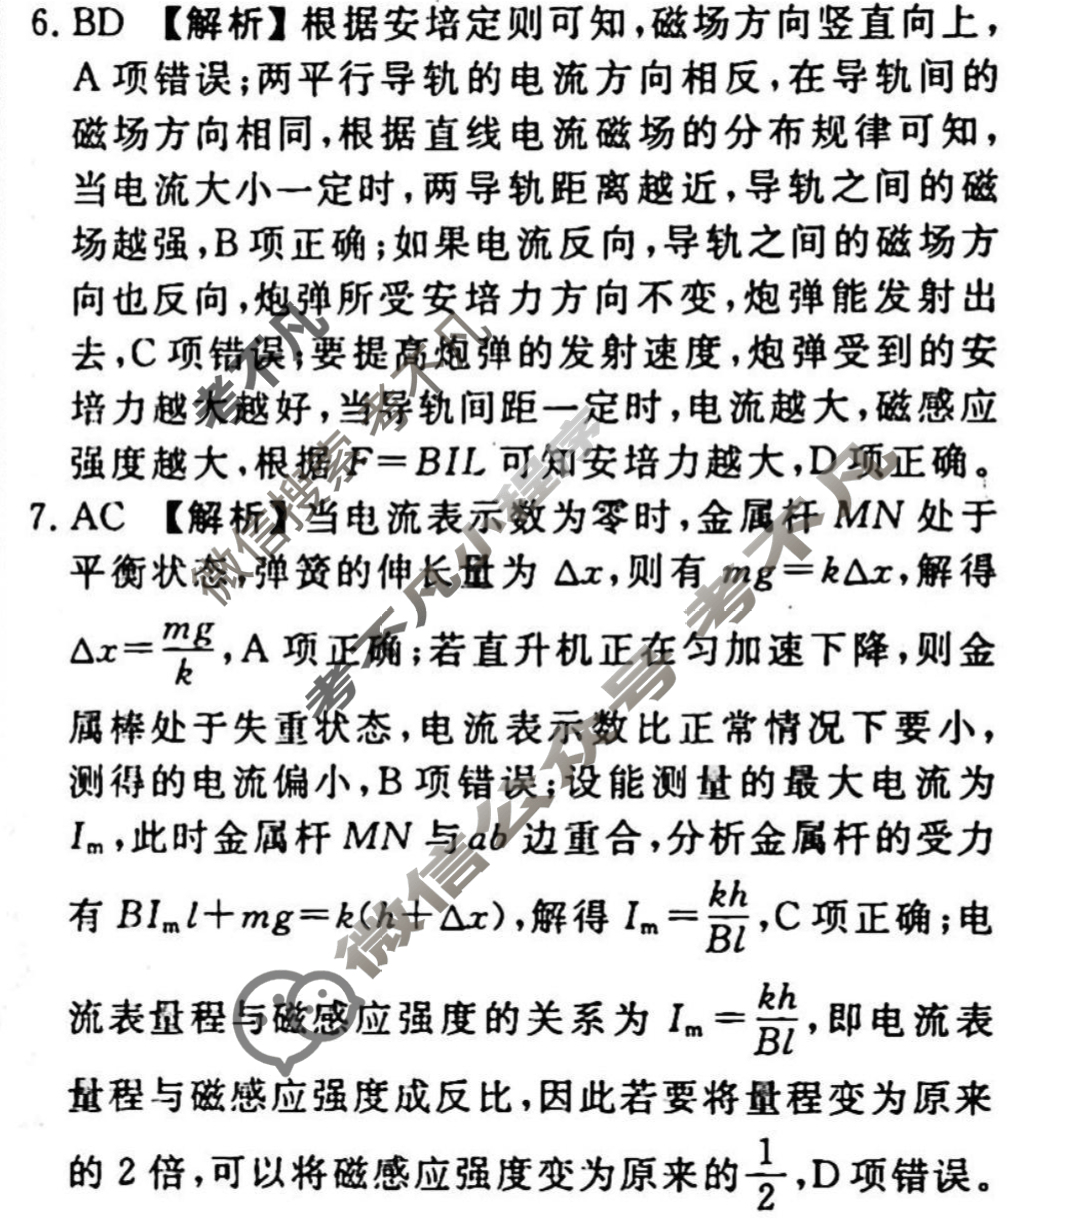 6. BD 【解析】根据安培定则可知,磁场方向竖直向上,
A 项错误;两平行导轨的电流方向相反,在导轨间的
磁场方向相同,根据直线电流磁场的分布规律可知,
当电流大小一定时,两导轨距离越近,导轨之间的磁
场越强,B 项正确;如果电流反向,导轨之间的磁场方
向也反向,炮弹所受安培力方向不变,炮弹能发射出
去,C 项错误;要提高炮弹的发射速度,炮弹受到的安
培力越大越好,当导轨间距一定时,电流越大,磁感应
强度越大,根据 F=BIL 可知安培力越大,D 项正确。
7. AC 【解析】当电流表示数为零时,金属杆 MN 处于
平衡状态,弹簧的伸长量为 Δx,则有 mg=kΔx,解得
Δx=mg/k,A 项正确;若直升机正在匀加速下降,则金
属棒处于失重状态,电流表示数比正常情况下要小,
测得的电流偏小,B 项错误;设能测量的最大电流为
Iₘ,此时金属杆 MN 与 ab 边重合,分析金属杆的受力
有 BIₘl+mg=k(h+Δx),解得 Iₘ=kh/Bl,C 项正确;电
流表量程与磁感应强度的关系为 Iₘ=kh/Bl,即电流表
量程与磁感应强度成反比,因此若要将量程变为原来
的 2 倍,可以将磁感应强度变为原来的1/2,D 项错误。
考不凡
微信搜索 考不凡
考不凡小程序
微信公众号 考不凡